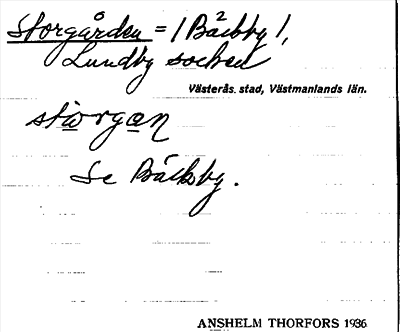 Storgården = /Bäckby 2/,
Lundby socken
Västerås. stad, Västmanlands län.
storgan
Se Bäckby.
ANSHELM THORFORS 1936